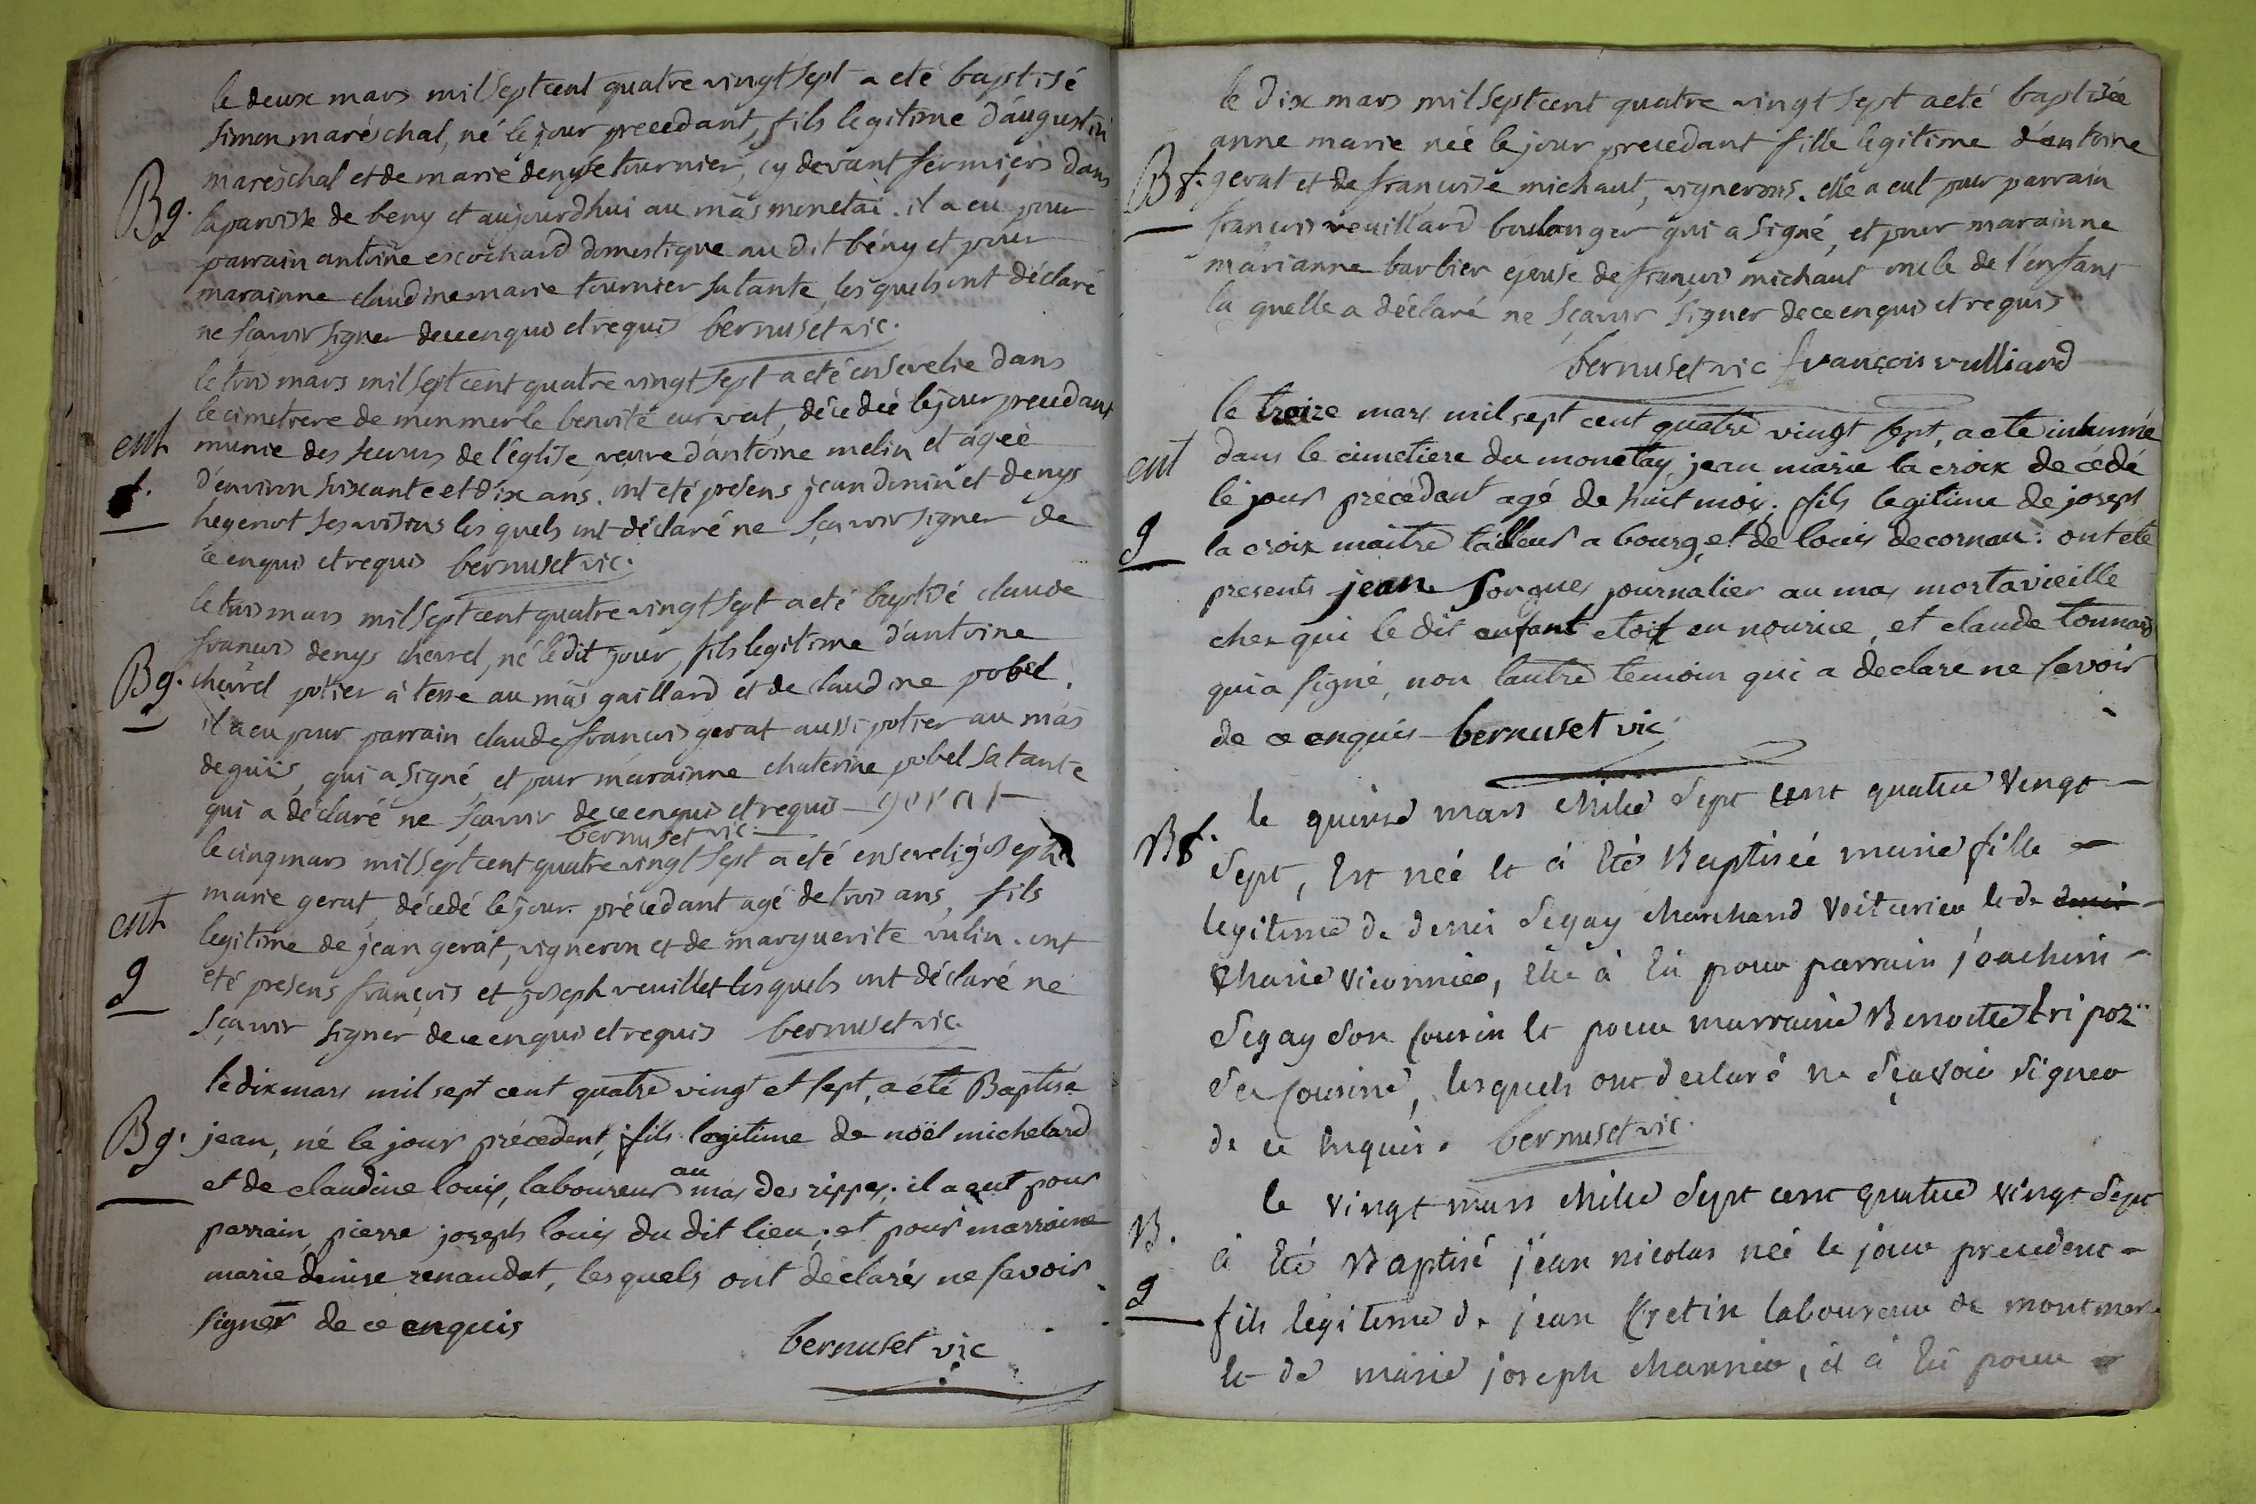 le deux mars mil sept cent quatre vingt sept a eté baptisé
simon maréschal, né le jour precedant, fils legitime d'augustin
maréschal et de marie denyse tournier, cy devant fermiers dans
Bg. la paroisse de beny et aujourdhui au mâs monetai. il a eu pour
parrain antoine escochard domestique au dit bény et pour
marainne claudine marie tournier sa tante, les quels ont déclaré
ne sçavoir signer de ce enquis et requis bernuset vic.
le trois mars mil sept cent quatre vingt sept a eté ensevelie dans
le cimetiere de monmerle benoite curvat, décedée le jour precedant
ent munie des secours de l'église, veuve d'antoine melin et agée
f. d'environ soixante et dix ans. ont eté presens jean donin et denys
hegenot ses voisins les quels ont déclaré ne sçavoir signer de
ce enquis et requis bernuset vic.
le trois mars mil sept cent quatre vingt sept a eté baptisé claude
françois denys chevrel, né le dit jour, fils legitime d'antoine
Bg. chevrel potier à terre au mâs gaillard et de claudine pobel.
il a eu pour parrain claude françois gerat aussi potier au mas
de guis, qui a signé, et pour marainne chaterine pobel sa tante
qui a déclaré ne sçavoir de ce enquis et requis gerat
bernuset vic.
le cinq mars mil sept cent quatre vingt sept a eté enseveli joseph
marie gerat, décedé le jour précedant agé de trois ans, fils
ent legitime de jean gerat, vigneron et de marguerite vulin. ont
g eté presens françois et joseph veuillet les quels ont déclaré ne
sçavoir signer de ce enquis et requis bernuset vic.
le dix mars mil sept cent quatre vingt et sept, a été Baptisé
Bg. jean, né le jour précédent, fils legitime de noël michelard
et de claudine louis, laboureurs au mas des rippes; il a eut pour
parrain, pierre joseph louis du dit lieu; et pour marraine
marie denise renaudat, les quels ont déclarés ne savoir
signer de ce enquis
bernuset vic
le dix mars mil sept cent quatre vingt sept a eté baptisée
anne marie née le jour precedant fille legitime d'antoine
Bf. gerat et de françoise michaut, vignerons. elle a eut pour parrain
françois veuillard boulanger qui a signé, et pour marainne
marianne barbier épouse de françois michaut oncle de l'enfant
la quelle a déclaré ne sçavoir signer de ce enquis et requis
bernuset vic françois vulliard
le treize mars mil sept cent quatre vingt sept, a eté inhumé
ent dans le cimetiere du monetay jean marie la croix decédé
le jour précédant agé de huit mois; fils legitime de joseph
g la croix maitre tailleur a bourg, et de louis decornau: ont eté
presents jean Sorgues journalier au mas mortavieille
chez qui le dit enfant etoit en nourice, et claude tonnaid
qui a signé, non l'autre temoin qui a declare ne savoir
de ce enquis bernuset vic
le quinze mars Mile Sept cent quatre vingt
Bf. Sept, Est née et à Eté Baptisée marie fille
legitime de denis Segay Marchand Voiturier, et de
Marie viconnier, Elle à Eu pour parrain joachim
Segay Son Cousin Et pour marraine Benoite tripoz
Sa Cousine, lesquels ont declaré ne Sçavoir Signer
de ce Enquis. bernuset vic.
le vingt mars Mile Sept cent quatre vingt Sept
B. à Eté Baptisé jean nicolas née le jour precedent
g fils légitime de jean Cretin laboureur de montmerle
Et de marie joseph Mannier, il à Eu pour